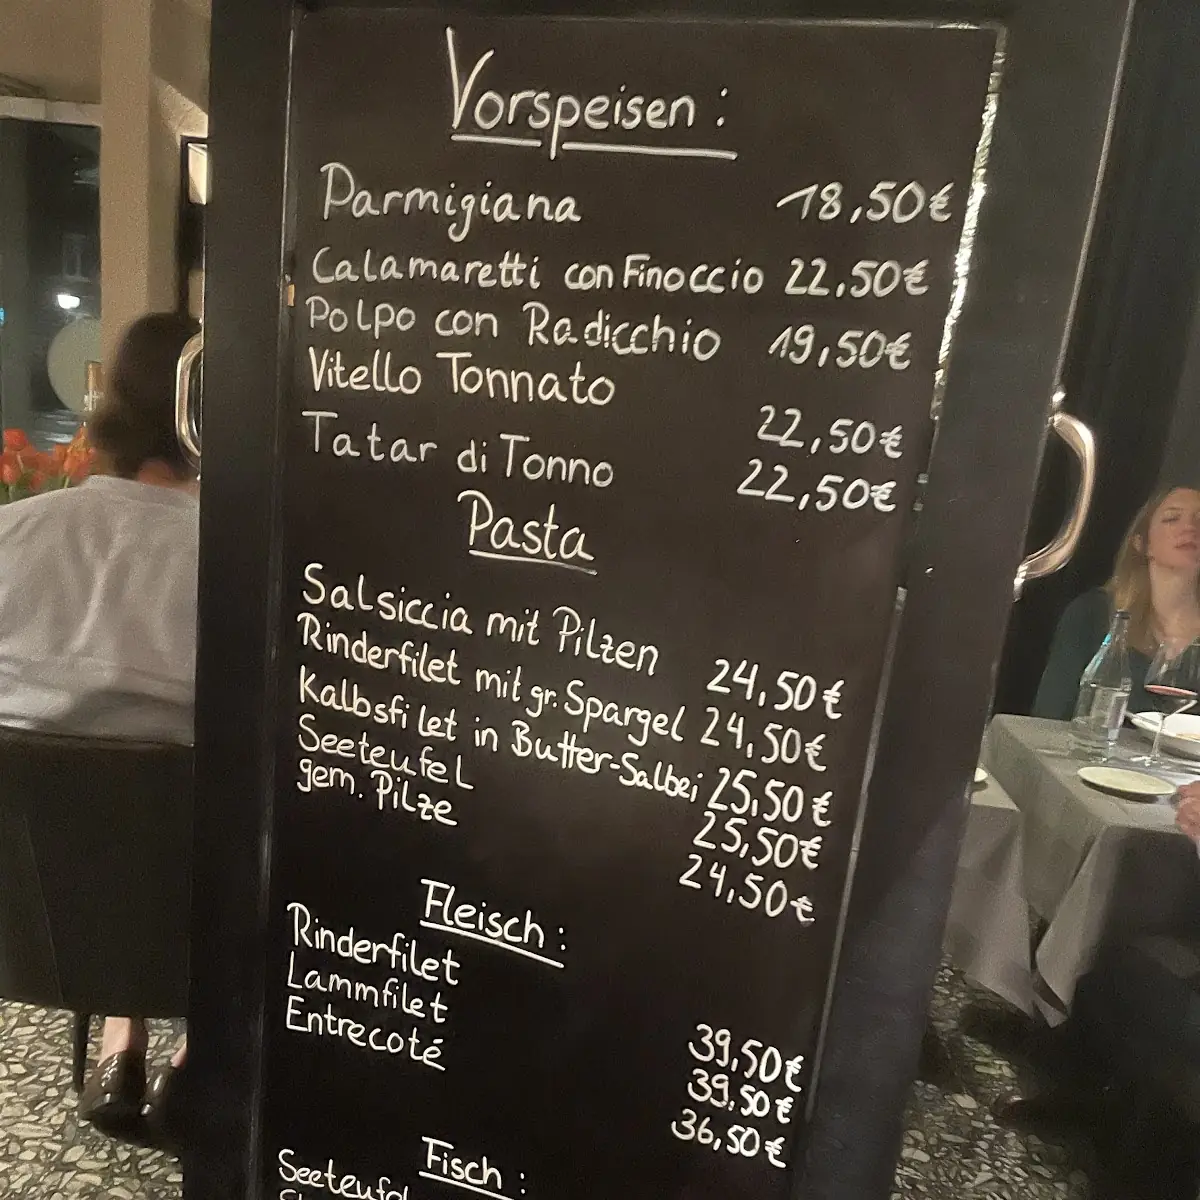 Vorspeisen:
Parmigiana 18,50€
Calamaretti con Finoccio 22,50€
Polpo con Radicchio 19,50€
Vitello Tonnato 22,50€
Tatar di Tonno 22,50€
Pasta
Salsiccia mit Pilzen 24,50€
Rinderfilet mit gr. Spargel 24,50€
Kalbsfilet in Butter-Salbei 25,50€
Seeteufel 25,50€
gem. Pilze 24,50€
Fleisch:
Rinderfilet 39,50€
Lammfilet 39,50€
Entrecoté 36,50€
Fisch:
Seeteufel